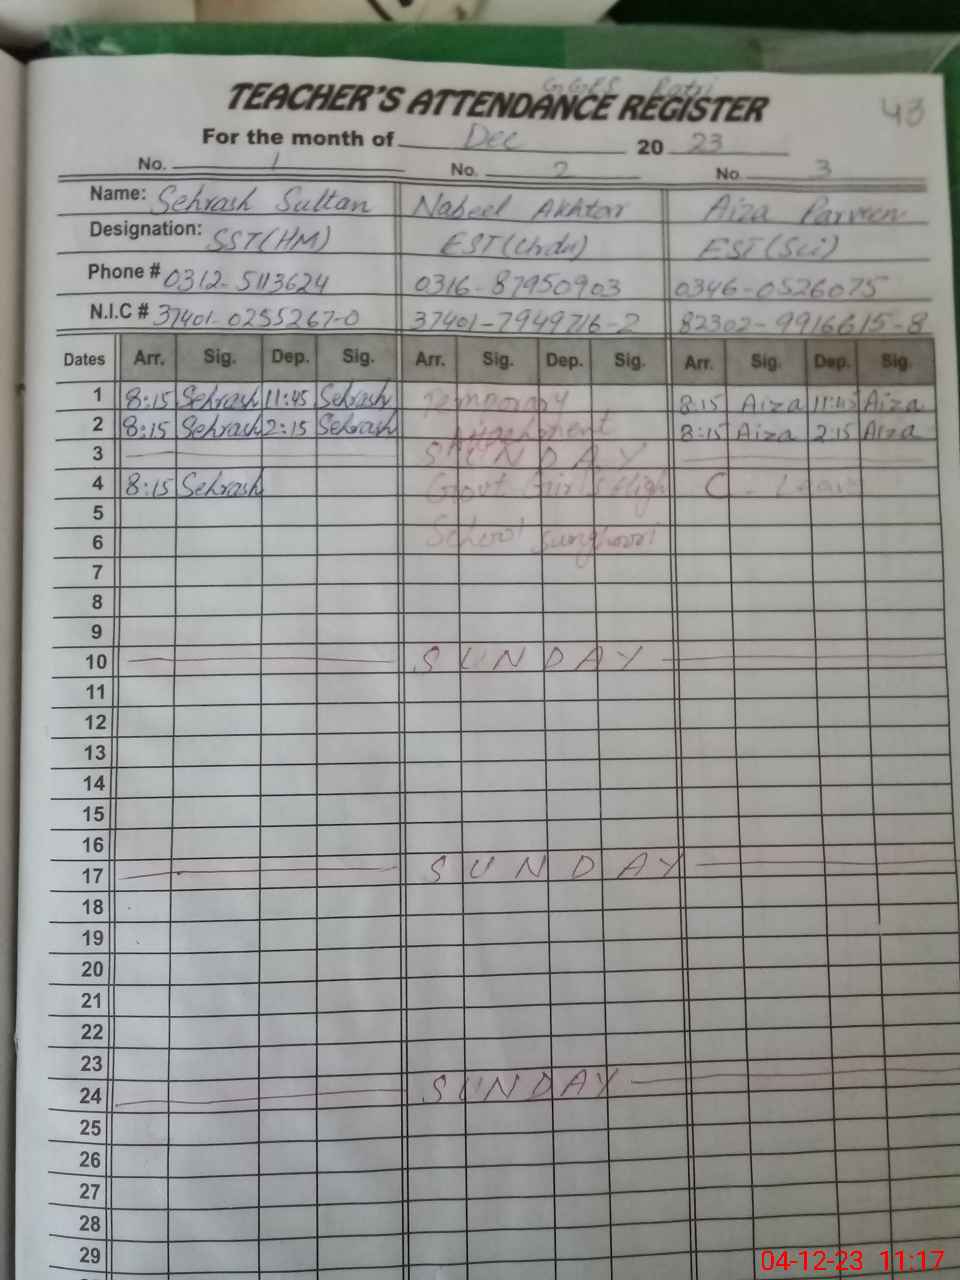 GGES Ratni
TEACHER'S ATTENDANCE REGISTER 43
For the month of Dec 20 23
No. 1 No. 2 No 3
Name: Sehrash Sultan Nabeel Akhtar Aiza Parveen
Designation: SST(HM) EST(Urdu) EST(Sci)
Phone # 0312-5113624 0316-87950903 0346-0526075
N.I.C # 37401-0255267-0 37401-7949716-2 82302-9916615-8
Dates Arr. Sig. Dep. Sig. Arr. Sig. Dep. Sig. Arr. Sig. Dep. Sig.
1 8:15 Sehrash 11:45 Sehrash Temporary 8:15 Aiza 11:45 Aiza
2 8:15 Sehrash 2:15 Sehrash Attachment 8:15 Aiza 2:15 Aiza
3 SUNDAY
4 8:15 Sehrash Govt Girls High C. Leave
5
6 School
7
8
9
10 SUNDAY
11
12
13
14
15
16
17 SUNDAY
18
19
20
21
22
23
24 SUNDAY
25
26
27
28
29
04-12-23 11:17